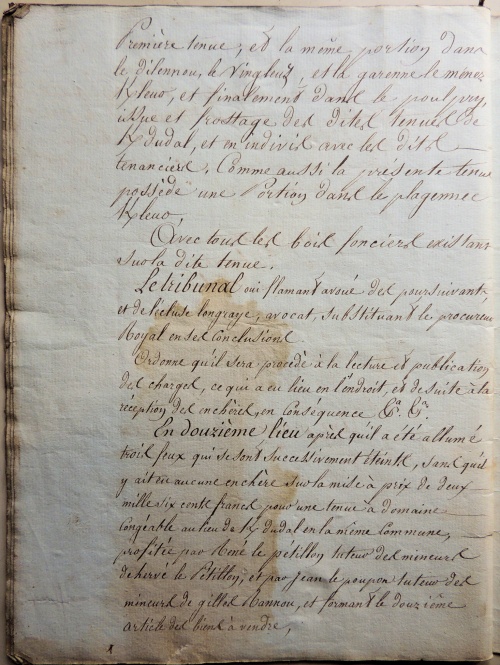 Première tenue, et la même portion dans
le dilennou, le Vingleuz, et la garenne le menez
Kleuo, et finalement dans le poulpry,
issue et frostage des dites tenues de
K/dudal, et en indivis avec les dits
tenanciers, Comme aussi la présente tenue
possède une Portion dans le plagennec
Kleuo,
Avec tous les bois fonciers existans
sur la dite tenue.
Le tribunal oui flamant avoué des poursuivants,
et de l'écluse longraye, avocat, substituant le procureur
Royal en ses Conclusions
Ordonne qu'il sera procédé à la lecture et publication
des charges, ce qui a eu lieu en l'endroit, et de suite à la
réception des enchères, en conséquence
En douzième lieu après qu'il a été allumé
trois feux qui se sont successivement éteints, sans qu'il
y ait eu aucune enchère sur la mise à prix de deux
mille six cents francs pour une tenue à domaine
Congéable au lieu de K/dudal en la même Commune,
profitée par Réné le pétillon tuteur des mineurs
de hervé le Pétillon, et par jean le poupon tuteur des
mineurs de gilles Rannou, et formant le douzième
article des biens à vendre,